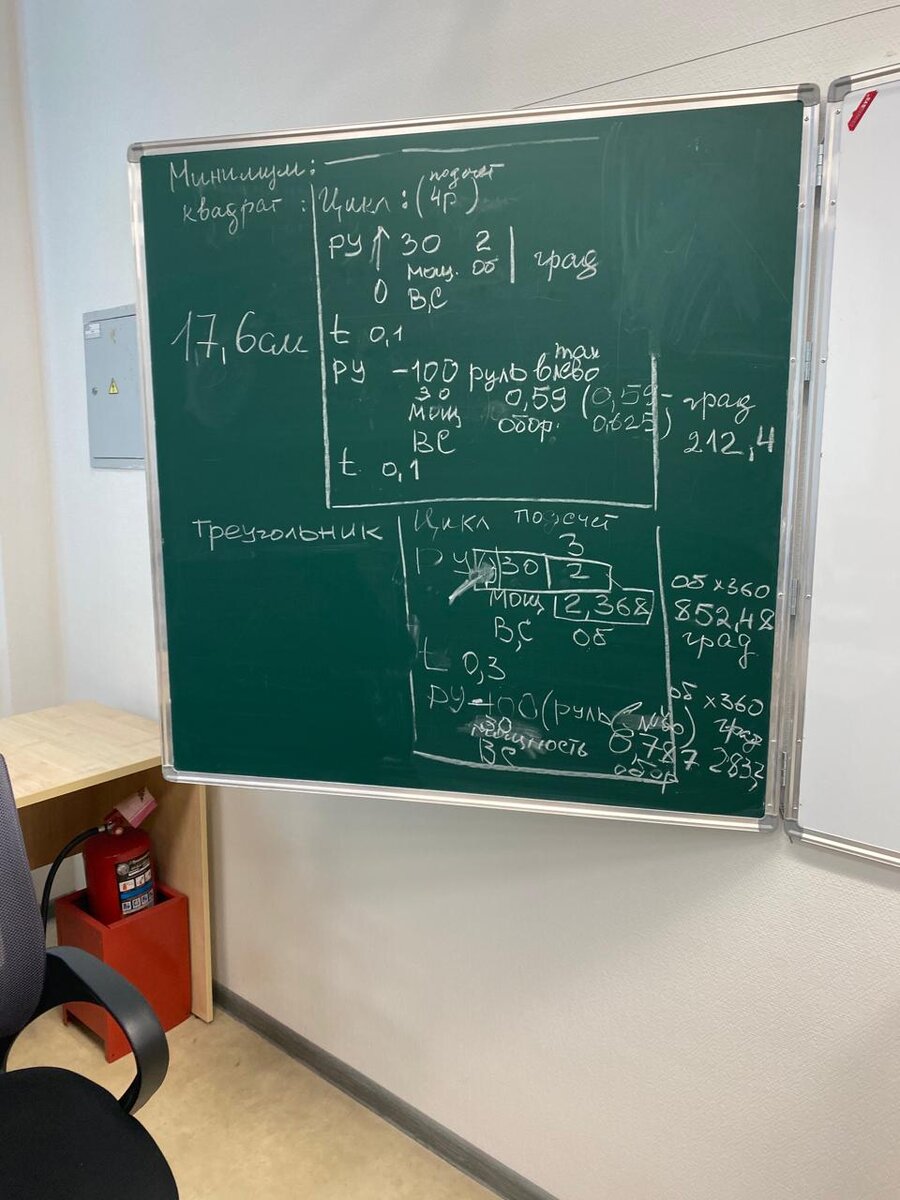 Минимум:
квадрат : Цикл : (подсчёт 4р)
РУ ↑ 30 2 | град
мощ. об
0 В,С
17,6см
t 0,1
РУ -100 руль влево
30 0,59 (0,59-0,625) град
мощ обор. 212,4
ВС
t 0,1
Треугольник Цикл подсчет
3
РУ 30 2
мощ 2,368 об х360
В,С об 852,48
град
t 0,3
РУ -100 (руль об х360
30 град
мощность 0,787 283,
ВС обор